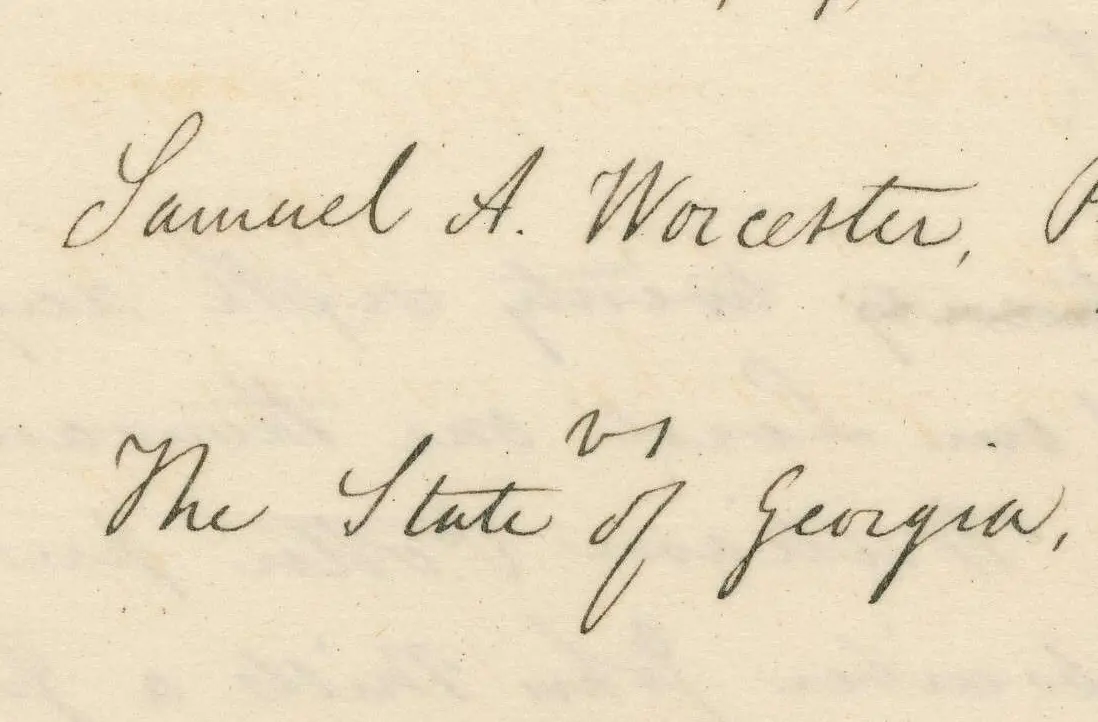 Samuel A. Worcester,
vs
The State of Georgia,